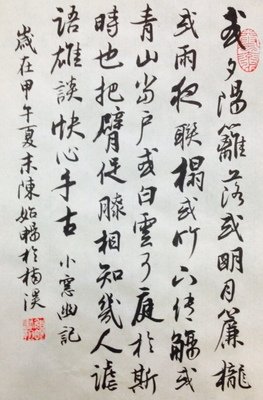 或夕陽籬落或明月簾櫳
或雨夜聯榻或竹下傳觴或
青山當戶或白雲可庭於斯
時也把臂促膝相知幾人謔
語雄談快心千古 小窓幽記
歲在甲午夏末陳於楠溪